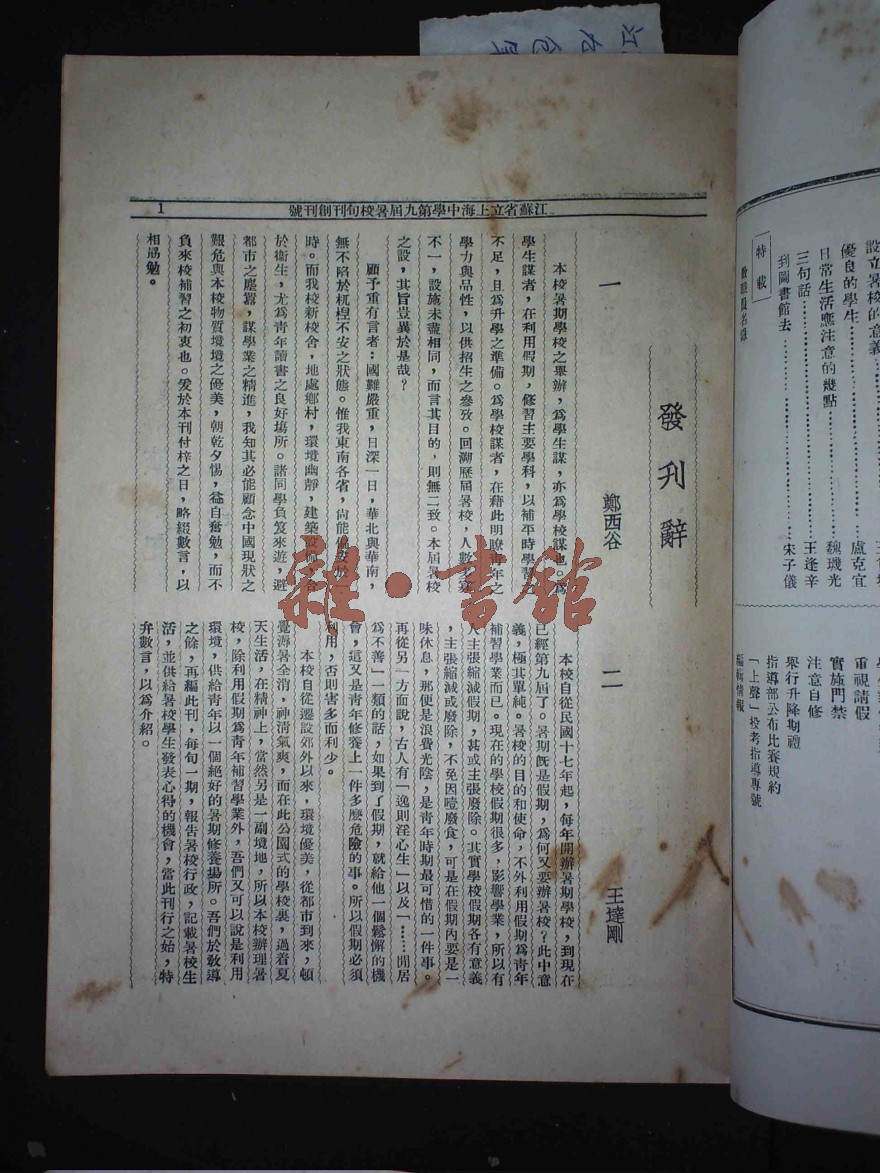 江蘇省立上海中學第九屆暑校旬刊創刊號
1
發刊辭
一
鄭西谷
本校暑期學校之舉辦，為學生謀，亦為學校謀也。為
學生謀者，在利用假期，修習主要學科，以補平時學習之
不足，且為升學之準備。為學校謀者，在藉此明瞭青年之
學力與品性，以供招生之參攷。回溯歷屆暑校，人數多寡
不一，設施未盡相同，而言其目的，則無二致。本屆暑校
之設，其旨豈異於是哉？
顧予重有言者：國難嚴重，日深一日，華北與華南，
無不陷於杌桯不安之狀態。惟我東南各省，尙能偷安於一
時。而我校新校舍，地處鄉村，環境幽靜，建築設備，合
於衞生，尤為青年讀書之良好場所。諸同學負笈來遊，避
都市之塵囂，謀學業之精進，我知其必能顧念中國現狀之
艱危與本校物質環境之優美，朝乾夕惕，益自奮勉，而不
負來校補習之初衷也。爰於本刊付梓之日，略綴數言，以
相勗勉。
二
王達剛
本校自從民國十七年起，每年開辦暑期學校，到現在
已經第九屆了。暑期既是假期，為何又要辦暑校？此中意
義，極其單純。暑校的目的和使命，不外利用假期為青年
補習學業而已。現在的學校假期很多，影響學業，所以有
人主張縮減假期，甚或主張廢除。其實學校假期各有意義
，主張縮減或廢除，不免因噎廢食，可是在假期內要是一
味休息，那便是浪費光陰，是青年時期最可惜的一件事。
再從另一方面說，古人有「逸則淫心生」以及「……閒居
為不善」一類的話，如果到了假期，就給他一個鬆懈的機
會，這又是青年修養上一件多麼危險的事。所以假期必須
利用，否則害多而利少。
本校自從遷設郊外以來，環境優美，從都市到來，頓
覺溽暑全消，神清氣爽，而在此公園式的學校裏，過着夏
天生活，在精神上，當然另是一副境地，所以本校辦理暑
校，除利用假期為青年補習學業外，吾們又可以說是利用
環境，供給青年以一個絕好的暑期修養場所。吾們於教導
之餘，再編此刊，每旬一期，報告暑校行政，記載暑校生
活，並供給暑校學生發表心得的機會，當此刊行之始，特
弁數言，以為介紹。
設立暑校的意義
優良的學生……盧克宜
日常生活應注意的幾點……魏璣光
三句話……王逢辛
到圖書館去……宋子儀
特載
教職員名錄
重視請假
實施門禁
注意自修
舉行升降期禮
指導部公布比賽規約
「上聲」投考指導專號
編輯情報
雜·書館